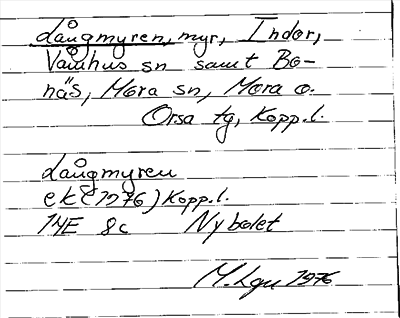 Långmyren, myr, Indor,
Våmhus sn samt Bo-
näs, Mora sn, Mora o.
Orsa tg, Kopp.l.
Långmyren
ek (1976) Kopp.l.
14E 8c Nybolet
M. 1976